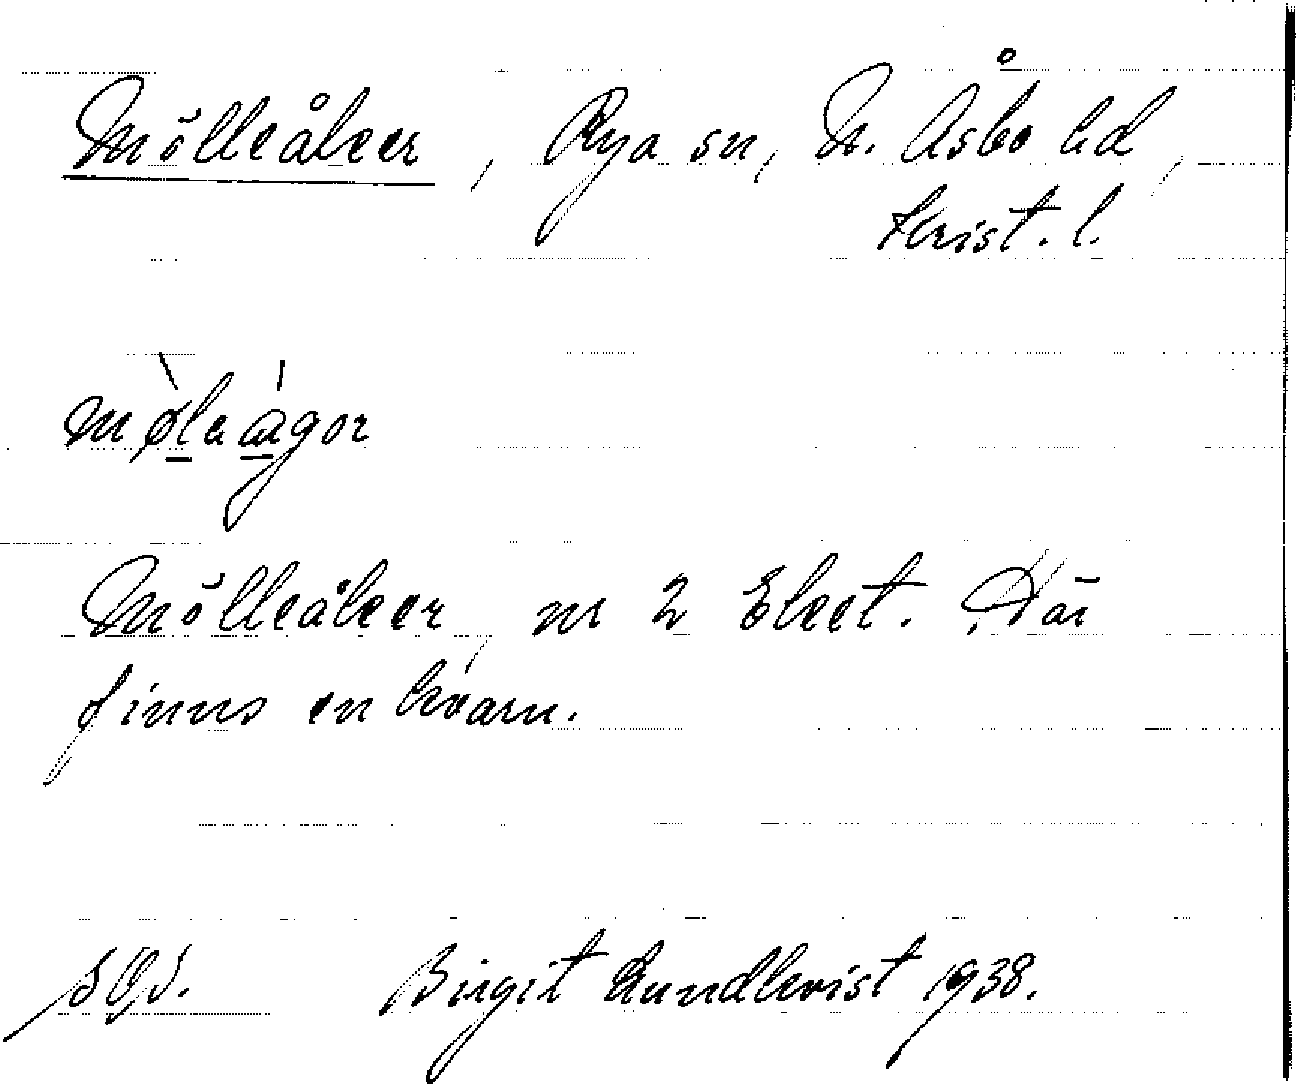 Mölleåker, Rya sn, N. Åsbo hd,
Krist. l.
mø̀laágor
Mölleåker, nr 2 Eket. Där
finns en kvarn.
Birgit Lundkvist 1938.